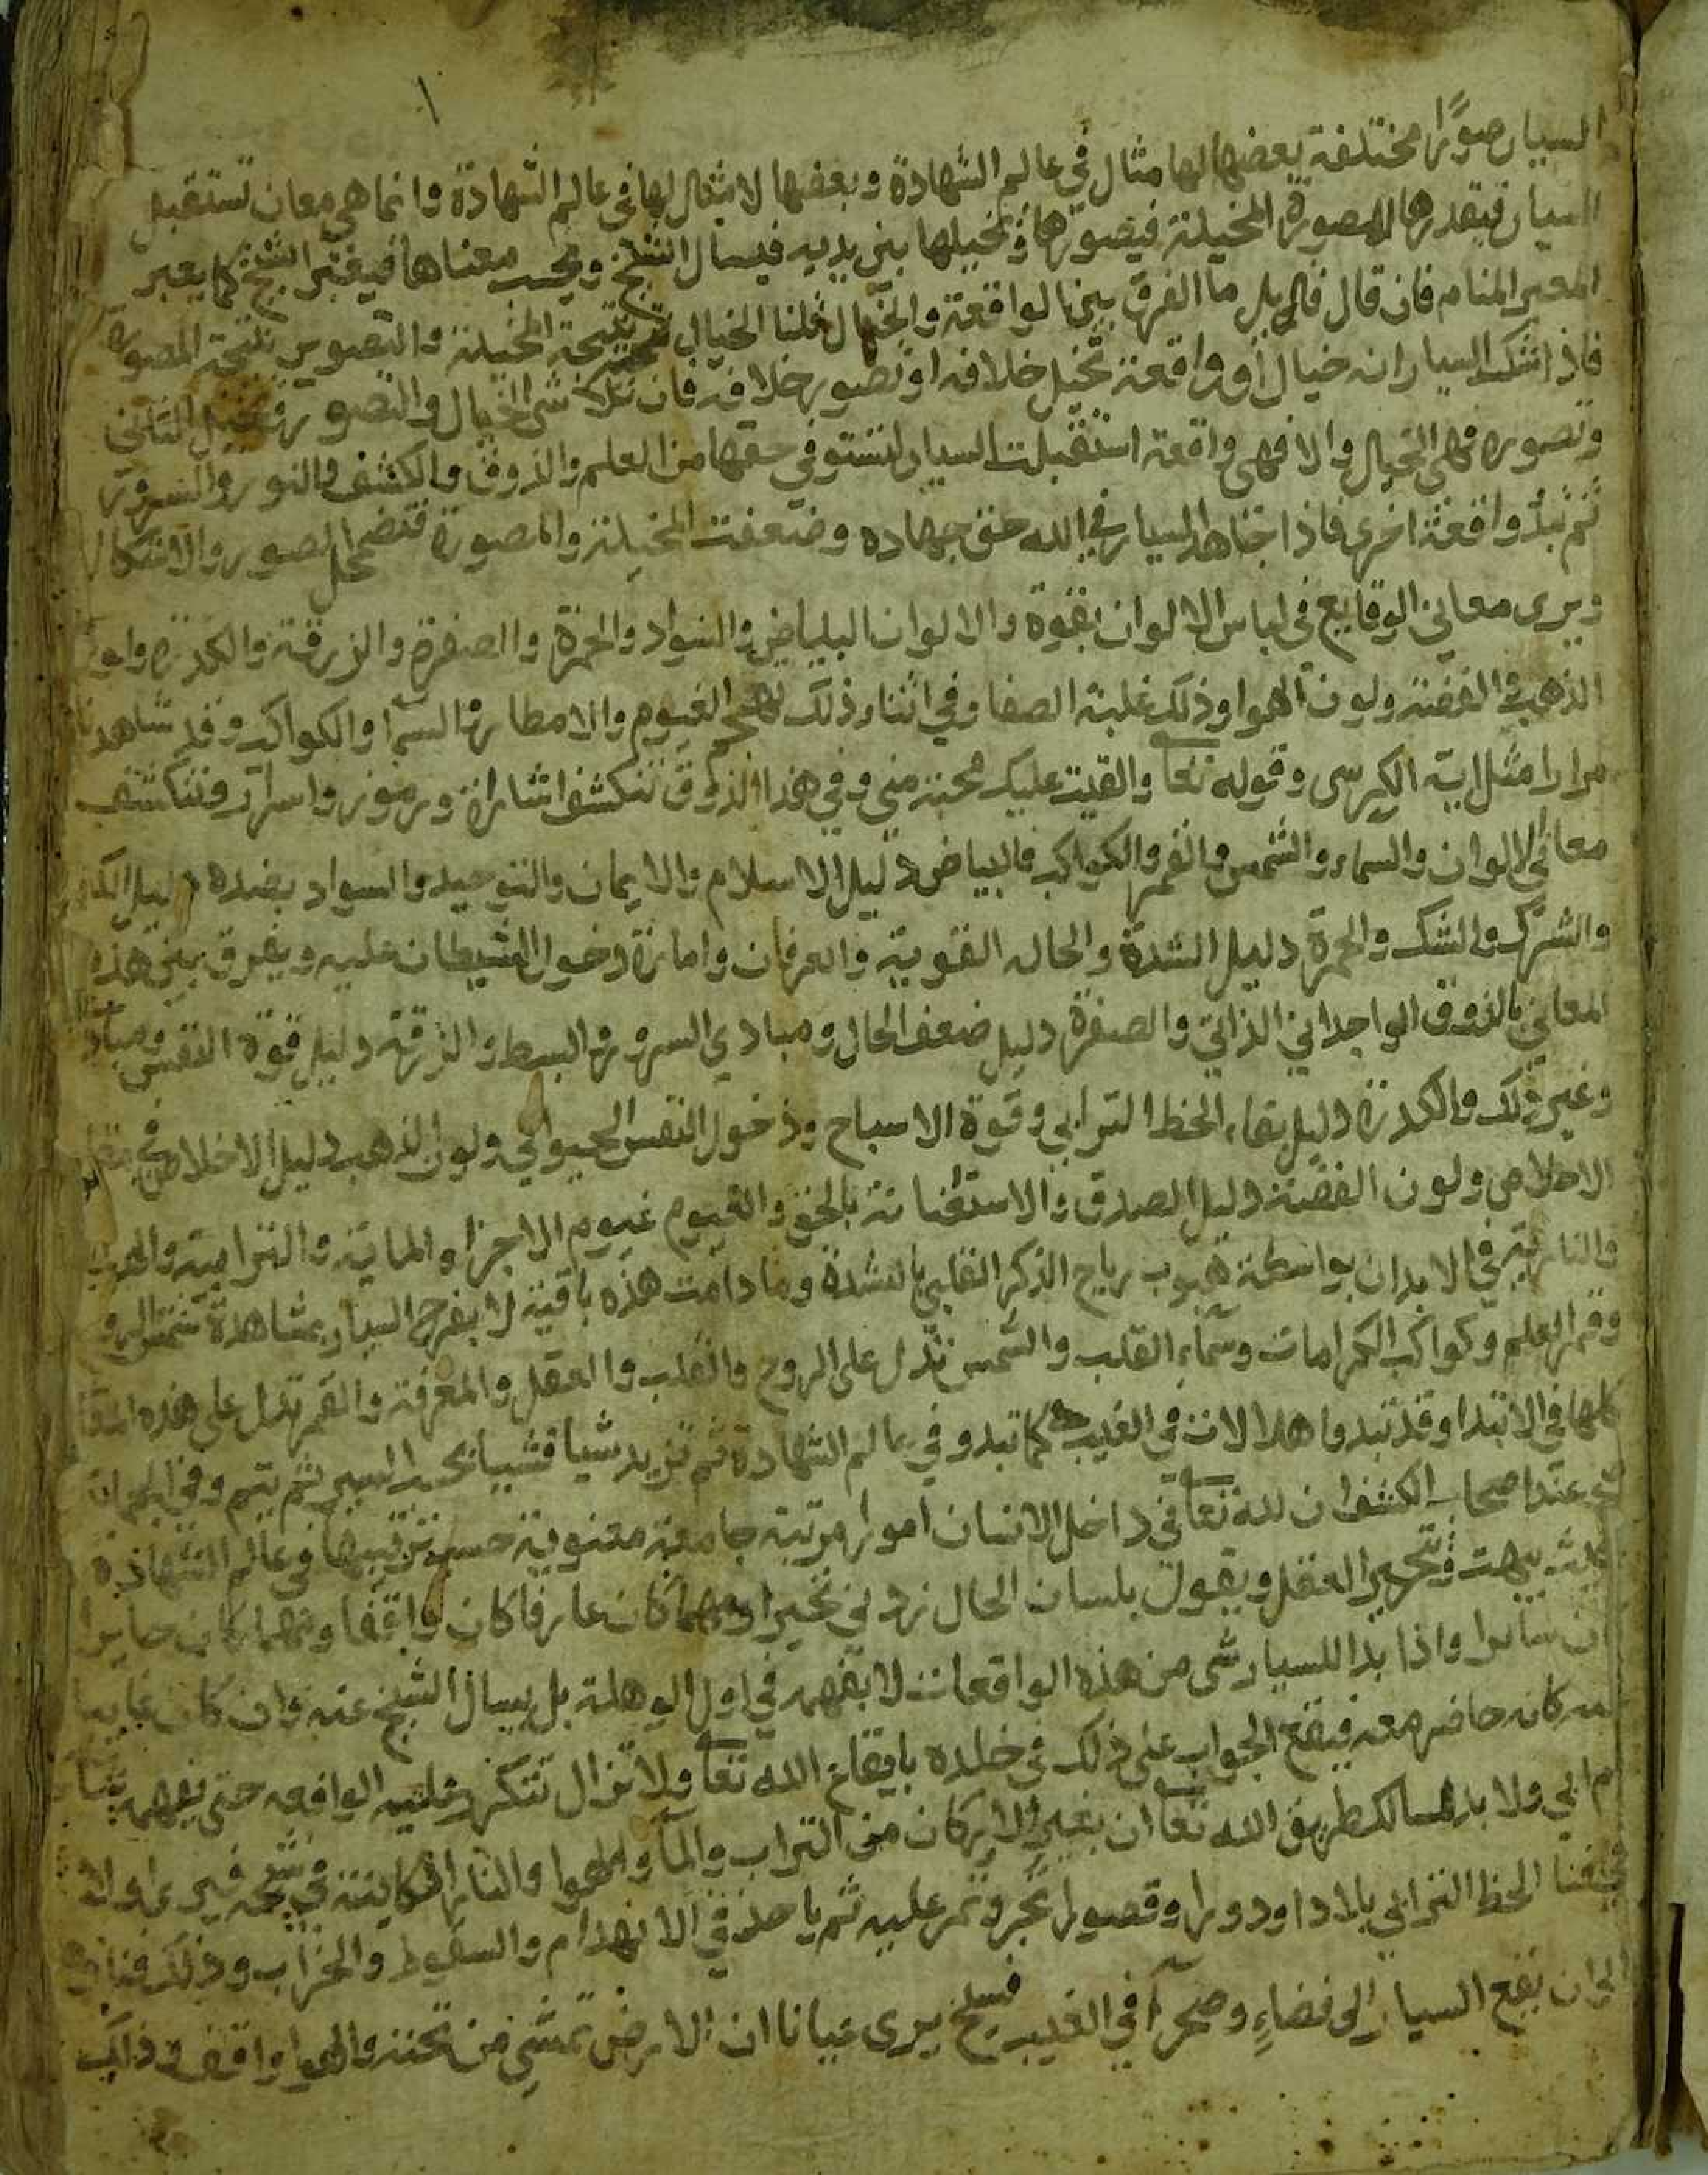 السيار صورًا مختلفة بعضها لها مثال في عالم الشهادة وبعضها لا مثال لها في عالم الشهادة وانما هي معان تستقبل
السيار فيقدرها المصورة المخيلة فيصورها وتخيلها بين يديه فيسال الشيخ معناها فيعبر الشيخ كما يعبر
المعبر المنام فان قال قايل ما الفرق بين الواقعة والخيال قلنا الخيال نتيجة المخيلة والتصوير نتيجة المصورة
فاذا شك السيار انه خيال او واقعة تخيل خلافه او تصور خلافه فان تلاشى الخيال والتصور وتخيل الثاني
وتصوره فهي الخيال والا فهي واقعة استقبلت السيار لتستوفي حقها من العلم والذوق والكشف والنور والسرور
ثم تبدو واقعة اخرى فاذا جاهد السيار في الله حق جهاده وضعفت المخيلة والمصورة فتضمحل الصور والاشكال
ويرى معاني الوقايع في لباس الالوان بقوة والالوان البياض والسواد والحمرة والصفرة والزرقة والكدرة ولون
الذهب والفضة ولون الهوا وذلك غلبة الصفا وفي اثناء ذلك الغيوم والامطار والسما والكواكب وقد شاهدنا
مرارا مثل اية الكرسي وقوله تعا والقيت عليك محبة مني وفي هذا الذوق تنكشف اشارات ورموز واسرار وتنكشف
معاني الالوان والسماء والشمس والقمر والكواكب فالبياض دليل الاسلام والايمان والتوحيد والسواد بضده دليل الكفر
والشرك والشك والحمرة دليل الشدة والحالة القوية والعرفان وامارة دخول الشيطان عليه ويفرق بين هذه
المعاني بالذوق الواجداني الذاتي والصفرة دليل ضعف الحال ومبادي السرور والبسط والزرقة دليل قوة النفس
وغير ذلك والكدرة دليل بقاء الحظ الترابي وقوة الاسباح ودخول النفس الحيواني ولون الذهب دليل الاخلاص
الاخلاص ولون الفضة دليل الصدق والاستغناية بالحق والغيوم غيوم الاجزاء والماية والترابية والهوايية
والنارية في الابدان بواسطة هبوب رياح الذكر القلبي بالشدة وما دامت هذه باقية لا يفرح السيار بمشاهدة شمس الروح
وقمر العلم وكواكب الكرامات وسماء القلب والشمس تدل على الروح والقلب والعقل والمعرفة والقمر تدل على هذه
كلها في الابتدا وقد تبدوا هلالا في الغيب كما تبدو في عالم الشهادة ثم تزيد شيا فشيا بحسب السير ثم يتم وفي
عند اصحاب الكشف ان لله تعا في داخل الانسان امورا مرتبة جامعة معنوية حسب ترتيبها في عالم الشهادة
يبهت ويتحير العقل ويقول بلسان الحال زدني تحيرا ومهما كان عارفا كان واقفا ومهما كان حايرا
سايرا واذا بدا للسيار شي من هذه الواقعات لا يفهمه في اول الوهلة بل يسال الشيخ عنه وان كان غايبا
كانه حاضر معه فيقع الجواب على ذلك في خلده بايقاع الله تعا ولا تزال تتكرر عليه الواقعه حتى يفهمه
ولا بد لسالك طريق الله تعا ان يغير الاركان من التراب والماء والهوا والنار الكاينة في فيرى اولا
الحظ الترابي بلادا ودورا وقصورا تجر وتمر عليه ثم ياخذ في الانهدام والسقوط والخراب وذلك
الى ان يقع السيار الى فضاءٍ وصحرآ في الغيب فسيح يرى عيانا ان الارض تمشي من تحته والهوا واقف